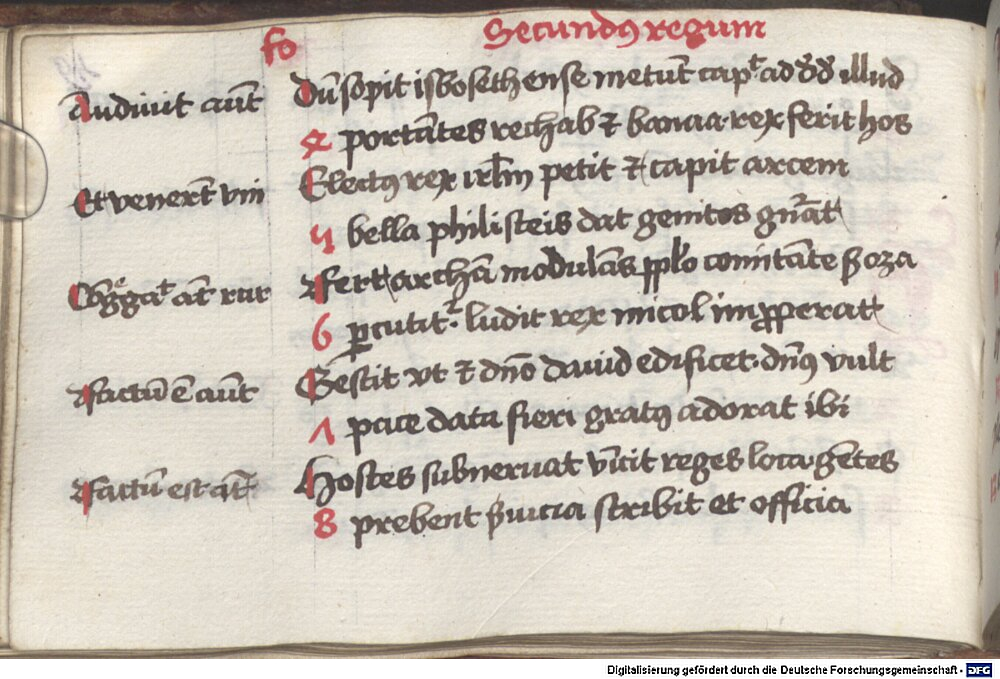 fo Secundꝰ regum
Audiuit aūt Dū sopit isboseth ense metūt capᵗ ad dd illud
4 portātes rechab ⁊ banaa · rex ferit hos
Et venerūt vni Electꝰ rex irłm petit ⁊ capit arcem
5 bella philisteis dat genitos gn̄at
aūt rur Fert archā modulās pplo comitāte ß oza
6 ꝑcutitᵣ · ludit rex micol imꝓperat
Factū ē aūt Gestit vt ⁊ dn̄o dauid edificet · dn̄s vult
7 pace data fieri gratꝰ adorat ibi
Factū est āt Hostes subneruat vīcit reges loca · gētes
8 prebent ẜuicia scribit et officia
Digitalisierung gefördert durch die Deutsche Forschungsgemeinschaft - DFG